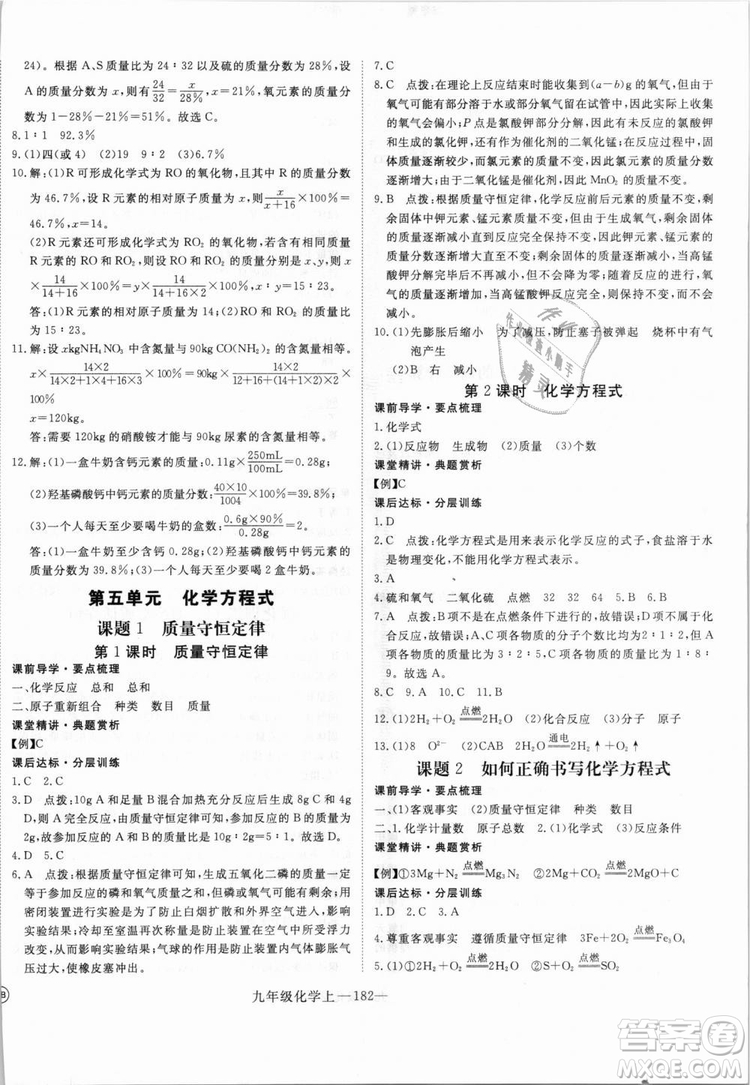 24)。根据 A、S 质量比为 24∶32 以及硫的质量分数为 28%,设
A 的质量分数为 x,则有24/32=x/28%,x=21%,氧元素的质量分数为
1-28%-21%=51%。故选 C。
8.1∶1 92.3%
9.(1)四(或 4) (2)19 9∶2 (3)266
10.解:(1)R 可形成化学式为 RO 的氧化物,其中 R 的质量分数
为 46.7%,设 R 元素的相对原子质量为 x,则有 x/(x+16)×100%=
46.7%,x=14。
(2)R 元素还可形成化学式为 RO₂ 的氧化物,设两种氧化物中
R 元素的质量与 RO、RO₂ 的质量分别是 x、y,则有
x×14/(14+16)×100%=y×14/(14+16×2)×100%,x∶y=15∶23。
答:(1)R 元素的相对原子质量为 14;(2)RO 与 RO₂ 的质量比为
15∶23。
11.解:设 xkgNH₄NO₃ 中氮元素的质量与 90kg CO(NH₂)₂ 相同。
xkg×14×2/(14×2+1×4+16×3)×100%=90kg×14×2/(12+16+14×2+1×4)×100%
x=120kg。
答:需要 120kg 的硝酸铵才与 90kg 尿素的含氮量相当。
12.解:(1)一盒牛奶含钙元素的质量:0.11g×250mL/100mL=0.28g
(2)羟基磷酸钙中钙元素的质量分数:40×10/1004×100%=39.8%
(3)一个人每天至少要喝牛奶的盒数:0.6g×90%/0.28g=2
答:(1)一盒牛奶至少含钙 0.28g;(2)羟基磷酸钙中钙元素的质
量分数为 39.8%;(3)一个人每天至少要喝 2 盒牛奶。
第五单元 化学方程式
课题 1 质量守恒定律
第 1 课时 质量守恒定律
课前导学·要点梳理
一、化学反应 总和 总和
二、原子重新组合 种类 数目 质量
课堂精讲·典题赏析
【例】C
课后达标·分层训练
1.C 2.C
3.B 点拨:10g A 和足量 B 混合加热充分反应生成 8g C 和
4g D,根据质量守恒定律可知,参加反应的 A 与 B 的质量和为
8g+4g=12g,A 的质量为 10g,所以参加反应的 B 的质量为
2g。
4.D 5.C
6.A 点拨:根据质量守恒定律可知,生成五氧化二磷的质量一定
等于参加反应的磷和氧气质量之和,而不能用减少的质量;使用
密闭装置进行实验,可以防止白烟扩散并且隔绝空气进入,影响
实验结果;冷却至室温再次称量是为了防止气体受热产生浮力
对实验产生影响;气球的作用是缓冲气压,防止气体受热膨胀后
气压过大,使橡皮塞冲出。
7.C
8.C 点拨:在理论上反应结束时能收集到(a-b)g 的氧气,但由于
氧气有部分溶于水或部分氧气留在试管中,因此实际上收集的
氧气会偏小;P 点是氯酸钾部分分解,一定有未反应的氯酸钾和
生成的氯化钾,还有作催化剂的二氧化锰;反应过程中固体的总
质量逐渐减少,而氯元素的质量不变,因此固体中氯元素的质量
分数逐渐增大;二氧化锰是催化剂,质量不变,因此 MnO₂ 的质
量分数也逐渐增大。
9.B 点拨:根据质量守恒定律,化学反应前后元素的质量不变,剩
余固体中钾元素、锰元素质量不变,由于生成氧气,剩余固体质
量逐渐减小,直到反应停止,故剩余固体中钾元素、锰元素的质
量分数会逐渐增大到定值;生成氧气的质量逐渐增大,到高锰
酸钾分解完毕后不再改变;固体中氧元素的质量分数会逐渐减
小;随着反应的进行,生成的二氧化锰的质量逐渐增加,所以其
质量分数增大,完全反应后为一定值。
10.(1)先膨胀后缩小 为了减压,防止塞子被弹起 烧杯中有气
泡产生
(2)B 右 减小
第 2 课时 化学方程式
课前导学·要点梳理
1.化学式
2.(1)反应物 生成物 (2)质量 (3)个数
课堂精讲·典题赏析
【例】C
课后达标·分层训练
1.D
2.C 点拨:化学方程式是用来表示化学反应的式子,食盐溶于水
中,没有生成新物质,是物理变化,不能用化学方程式表示。
3.A
4.硫和氧气 二氧化硫 点燃 32 32 64 5.B 6.D
7.A 点拨:B 项不是在点燃条件下进行的,故错误;D 项反应物不
是氧气,故错误;C 项各物质的质量比为 2∶3∶5,故错误;A
项化学方程式中各物质的分子数比和质量比为 1∶8∶
9。故选 A。
8.C 9.A 10.A 11.C
12.(1)2H₂+O₂=点燃=2H₂O (2)化合反应 (3)分子 原子
13.(1)8 O²⁻ (2)CAB 2H₂O=通电=2H₂↑+O₂↑
课题 2 如何正确书写化学方程式
课前导学·要点梳理
一、(1)客观事实 (2)质量守恒定律 种类 数目
二、1.化学计量数 原子总数 2.(4)条件 状态
课堂精讲·典题赏析
【例】①3Mg+N₂=点燃=Mg₃N₂ ②2Mg+CO₂=点燃=2MgO+C
课后达标·分层训练
1.D 2.C 3.A
4.尊重客观事实 遵循质量守恒定律 3Fe+2O₂=点燃=Fe₃O₄
5.(1)①C+O₂=点燃=CO₂ ②S+O₂=点燃=SO₂
九年级化学上—182—
B
作业
作业精灵小助手
精灵
答案圈
MXQE.COM